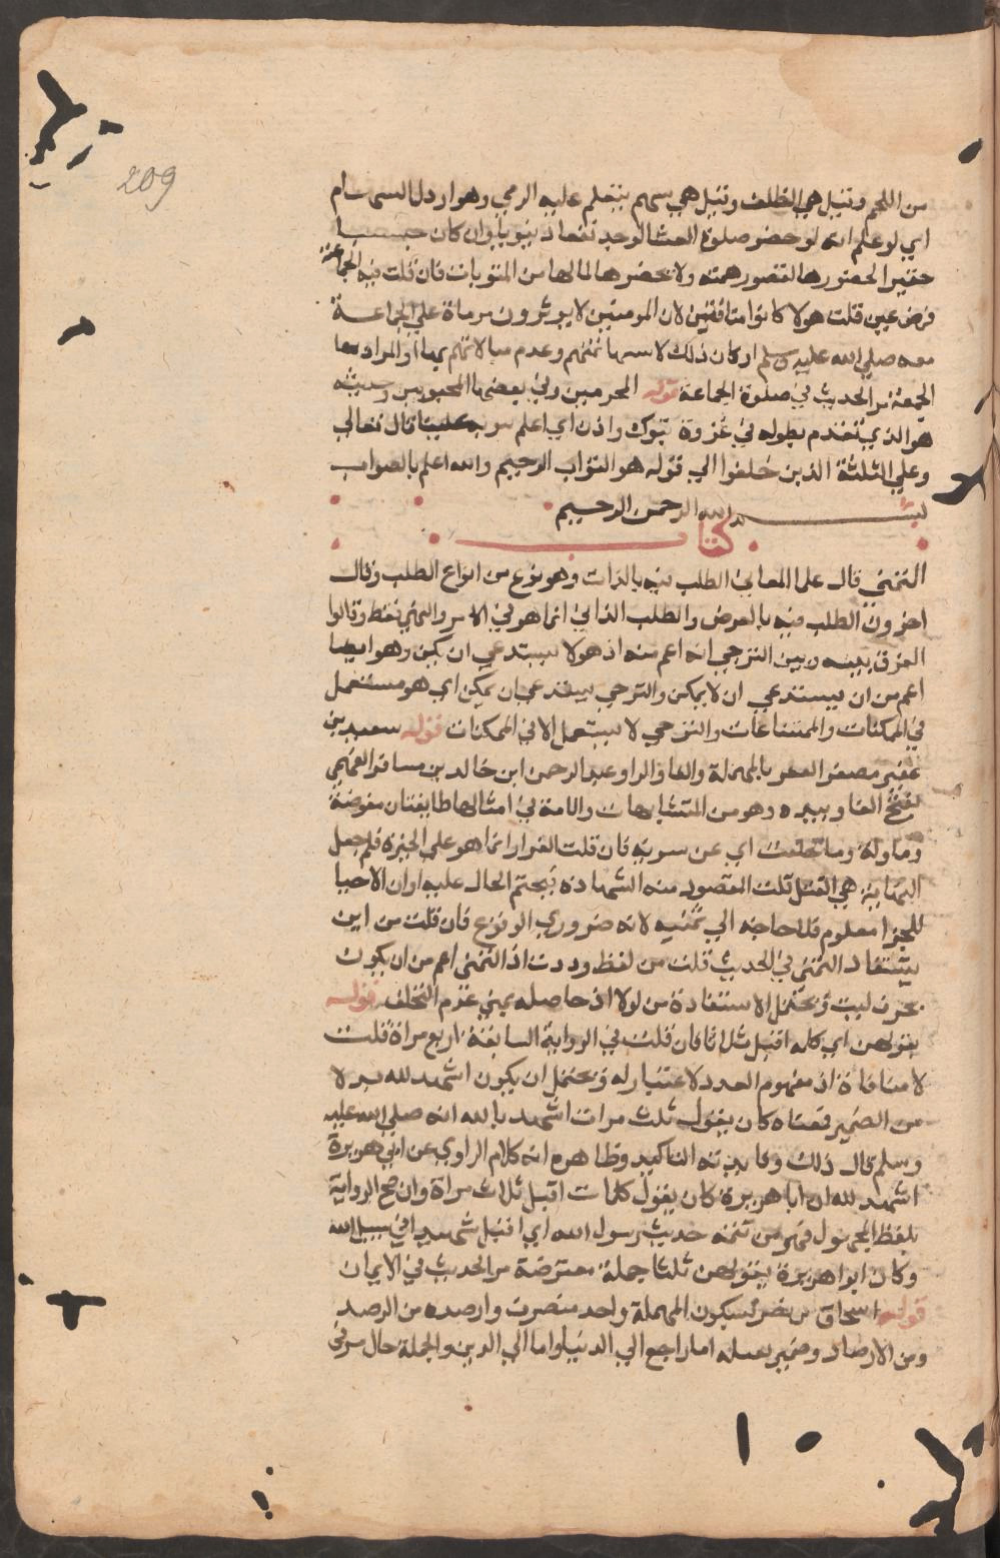 209
من اللحم وقيل هي الظلف وقيل هي سهم يتعلم عليه الرمي وهو ارذل السهام
اي لو علم انه لو حضر صلوة العشا لوجد نفعا دنيويا وان كان خسيسا
حقيرا لحضورها لقصور همته ولا يحضرها لما لها من المثوبات فان قلت فيه الجماعة
فرض عين قلت هولا كانوا منافقين لان المومنين لا يوثرون مرماة علي الجماعة
معه صلي الله عليه وسلم او كان ذلك لاستهانتهم وعدم مبالاتهم بها او المراد بها
الجمعة مر الحديث في صلوة الجماعة قوله المجرمين وفي بعضها المحبوس وحديثه
هو الذي تقدم بطوله في غزوة تبوك واذن اي اعلم بتوبة علينا قال تعالي
وعلي الثلثة الذين خلفوا الي قوله هو التواب الرحيم والله اعلم بالصواب
بسم الله الرحمن الرحيم
كتاب
التمني قال علما المعاني الطلب فيه بالذات وهو نوع من انواع الطلب وقال
اخرون الطلب فيه بالعرض والطلب الذاتي انما هو في الامر والنهي فقط وقالوا
الفرق بينه وبين الترجي انه اعم منه اذ هو لا يستدعي ان يمكن وهو ايضا
اعم من ان يستدعي ان لا يمكن والترجي يستدعي ان يمكن اي هو مستعمل
في الممكنات والممتناعات والترجي لا يستعمل الا في الممكنات قوله سعيد بن
عفير مصغر العفر بالمهملة والفا والرا وعبد الرحمن ابن خالد بن مسافر الفهمي
بفتح الفا وبيده وهو من المتشابهات والامة في امثالها طايفتان مفوضة
وماولة وما تخلفت اي عن سرية فان قلت القرار انما هو علي الخيرة فلم جعل
النهاية هي القتل قلت المقصود منه الشهادة فختم الحال عليه او ان الاحيا
للجزا معلوم فلا حاجة الي تمنيه لانه ضروري الوقوع فان قلت من اين
يستفاد التمني في الحديث قلت من لفظ وددت اذ التمني اعم من ان يكون
بحرف ليت ويحتمل الاستفادة من لولا اذ حاصله يمني عدم التخلف قوله
يقولهن اي كلمه اقتل ثلاثا فان قلت في الرواية السابقة اربع مراة قلت
لا منافاة اذ مفهوم العدد لا اعتبار له ويحتمل ان يكون اشهد لله بدلا
من الضمير فمعناه كان يقول ثلث مرات اشهد بالله انه صلي الله عليه
وسلم قال ذلك وفايدته التاكيد وظاهره انه كلام الراوي عن ابي هريرة
اشهد لله ان ابا هريرة كان يقول كلمات اقتل ثلاث مراة وان صح الرواية
بلفظ المجهول فهو من تتمة حديث رسول الله اي اقتل شهيدا في سبيل الله
وكان ابوا هريرة يقولهن ثلثا جملة معترضة مر الحديث في الايمان
قوله اسحاق بن نصر بسكون المهملة واحد منصرف وارصده من الرصد
ومن الارصاد وضمير يقبله اما راجع الي الدينار واما الي الدين والجملة حال مر في